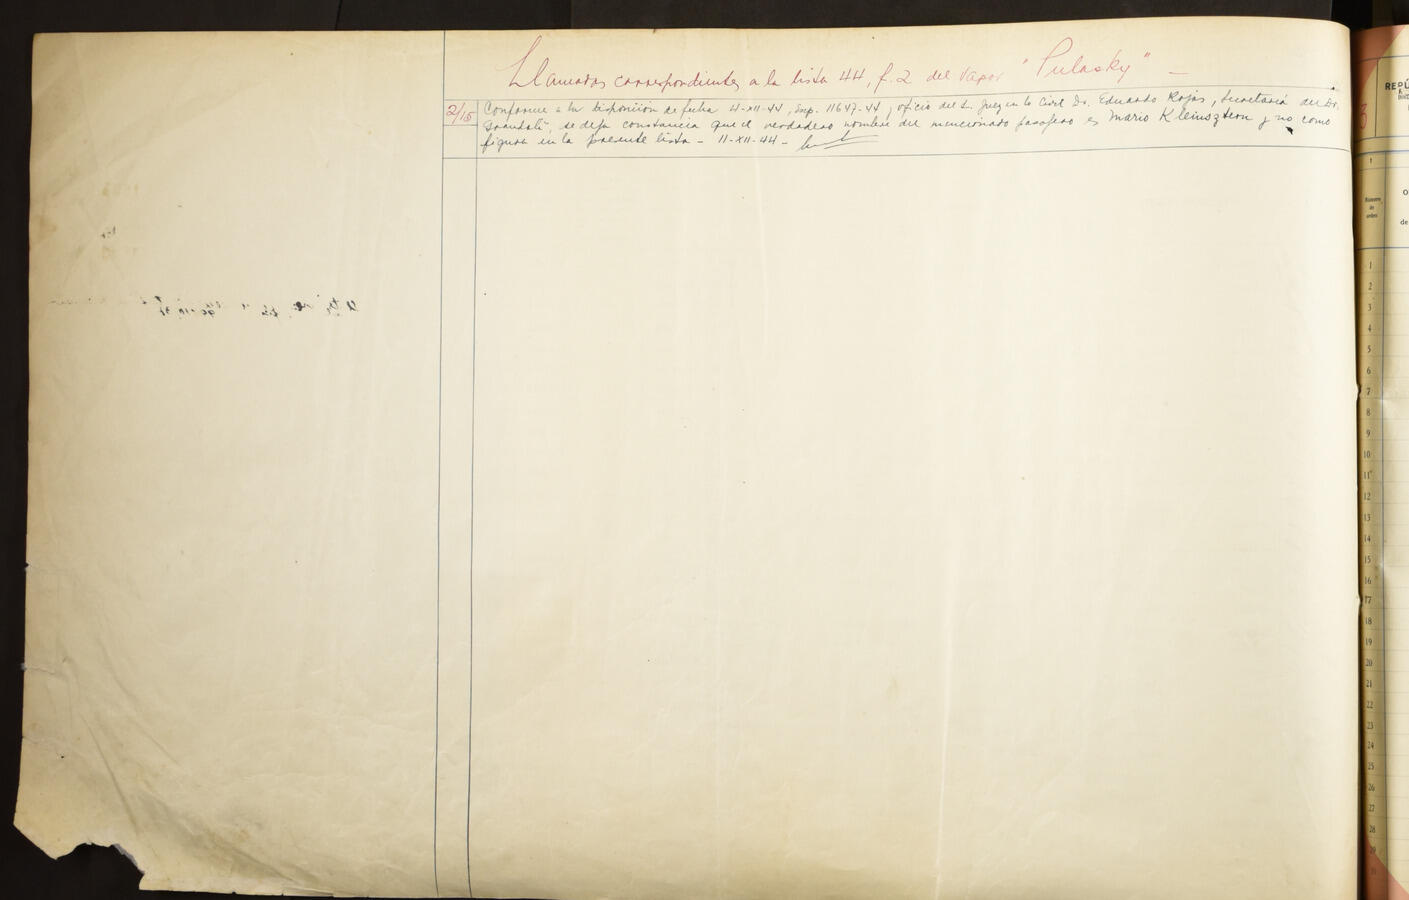 Llamadas correspondientes a la lista 44, f. 2 del vapor "Pulasky" —
2/15 Conforme a la disposición de fecha 4-XII-44, Exp. 11647-44, oficio del S. Juez en lo Civil Dr. Eduardo Rojas, Secretaría del Dr.
se deja constancia que el verdadero nombre del mencionado pasajero es Mario Kleinsztern y no como
figura en la presente lista - 11-XII-44 -
REPÚ
Número
de
orden
1
2
3
4
5
6
7
8
9
10
11
12
13
14
15
16
17
18
19
20
21
22
23
24
25
26
27
28